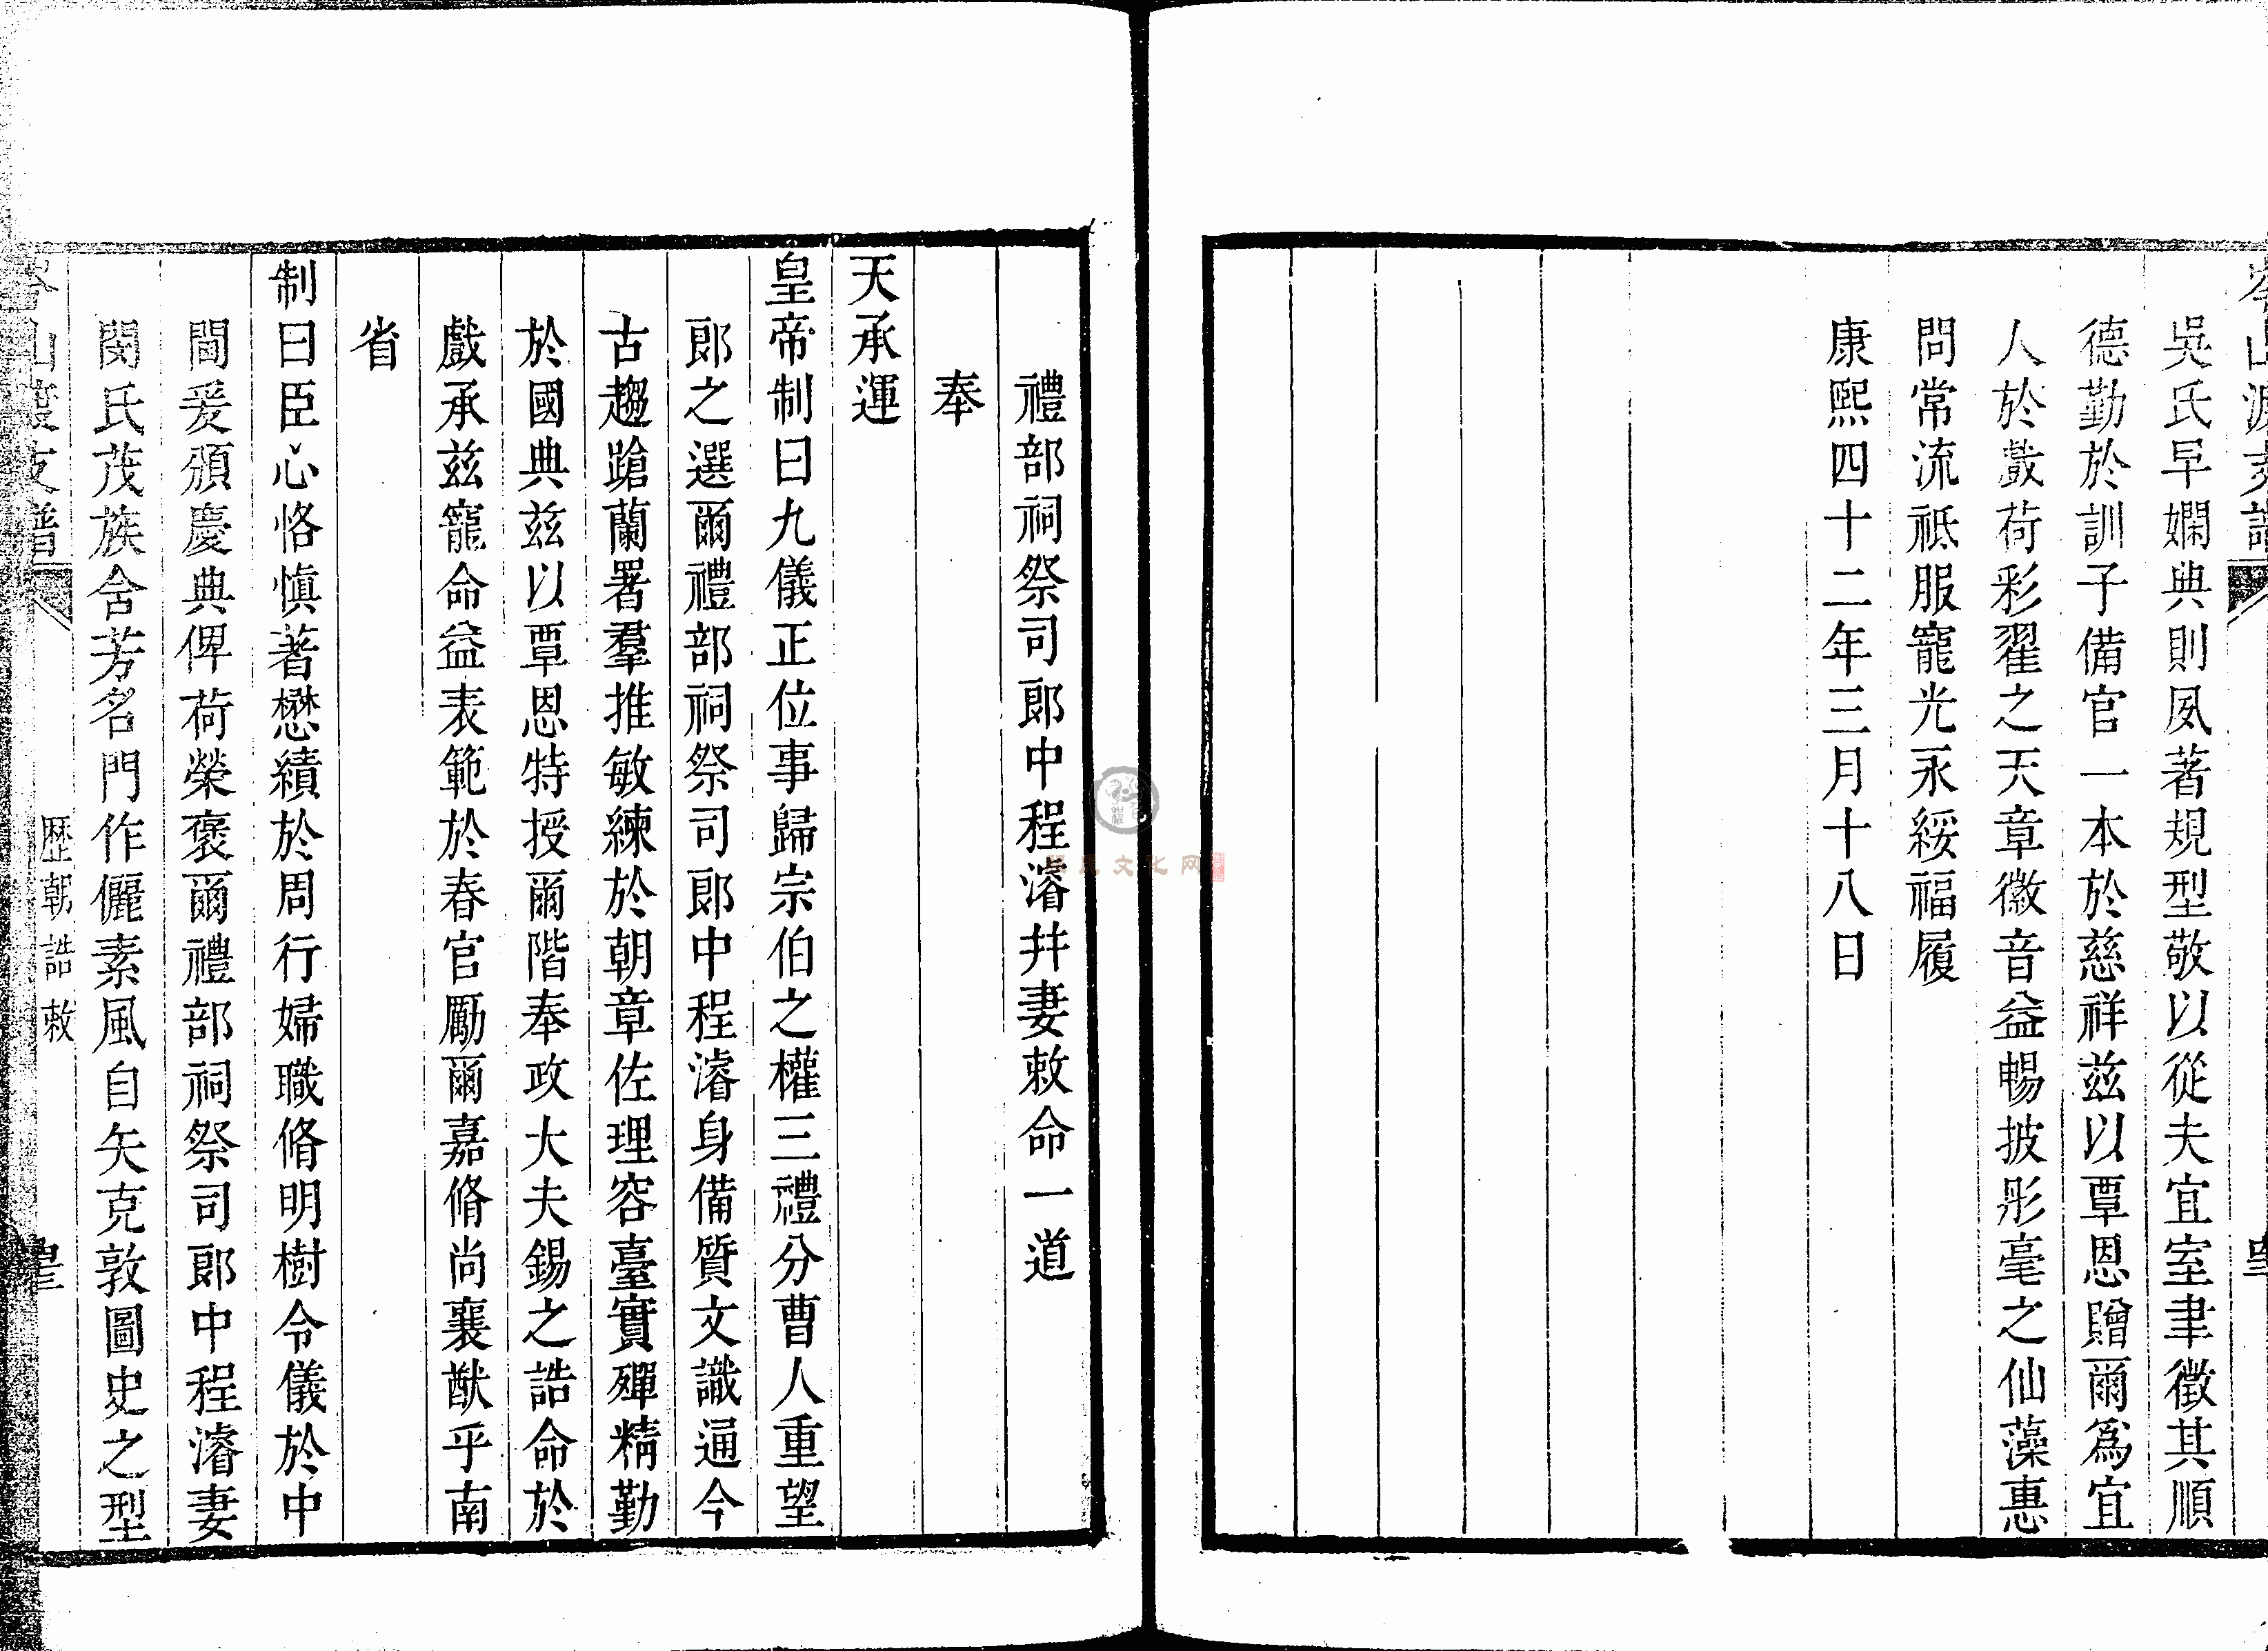 吳氏早嫻典則夙著規型敬以從夫宜室聿徵其順
德勤於訓子備官一本於慈祥玆以覃恩贈爾爲宜
人於戲荷彩翟之天章徽音益暢披彤毫之仙藻惠
問常流祇服寵光永綏福履
康熙四十二年三月十八日
禮部祠祭司郎中程濬幷妻敕命一道
奉
天承運
皇帝制曰九儀正位事歸宗伯之權三禮分曹人重望
郎之選爾禮部祠祭司郎中程濬身備質文識通今
古趨蹌蘭署羣推敏練於朝章佐理容臺實殫精勤
於國典玆以覃恩特授爾階奉政大夫錫之誥命於
戲承玆寵命益表範於春官勵爾嘉脩尚襄猷乎南
省
制曰臣心恪愼著懋績於周行婦職脩明樹令儀於中
閫爰頒慶典俾荷榮褒爾禮部祠祭司郎中程濬妻
閔氏茂族含芳名門作儷素風自矢克敦圖史之型
山渡支譜
歷朝誥敕
文化网